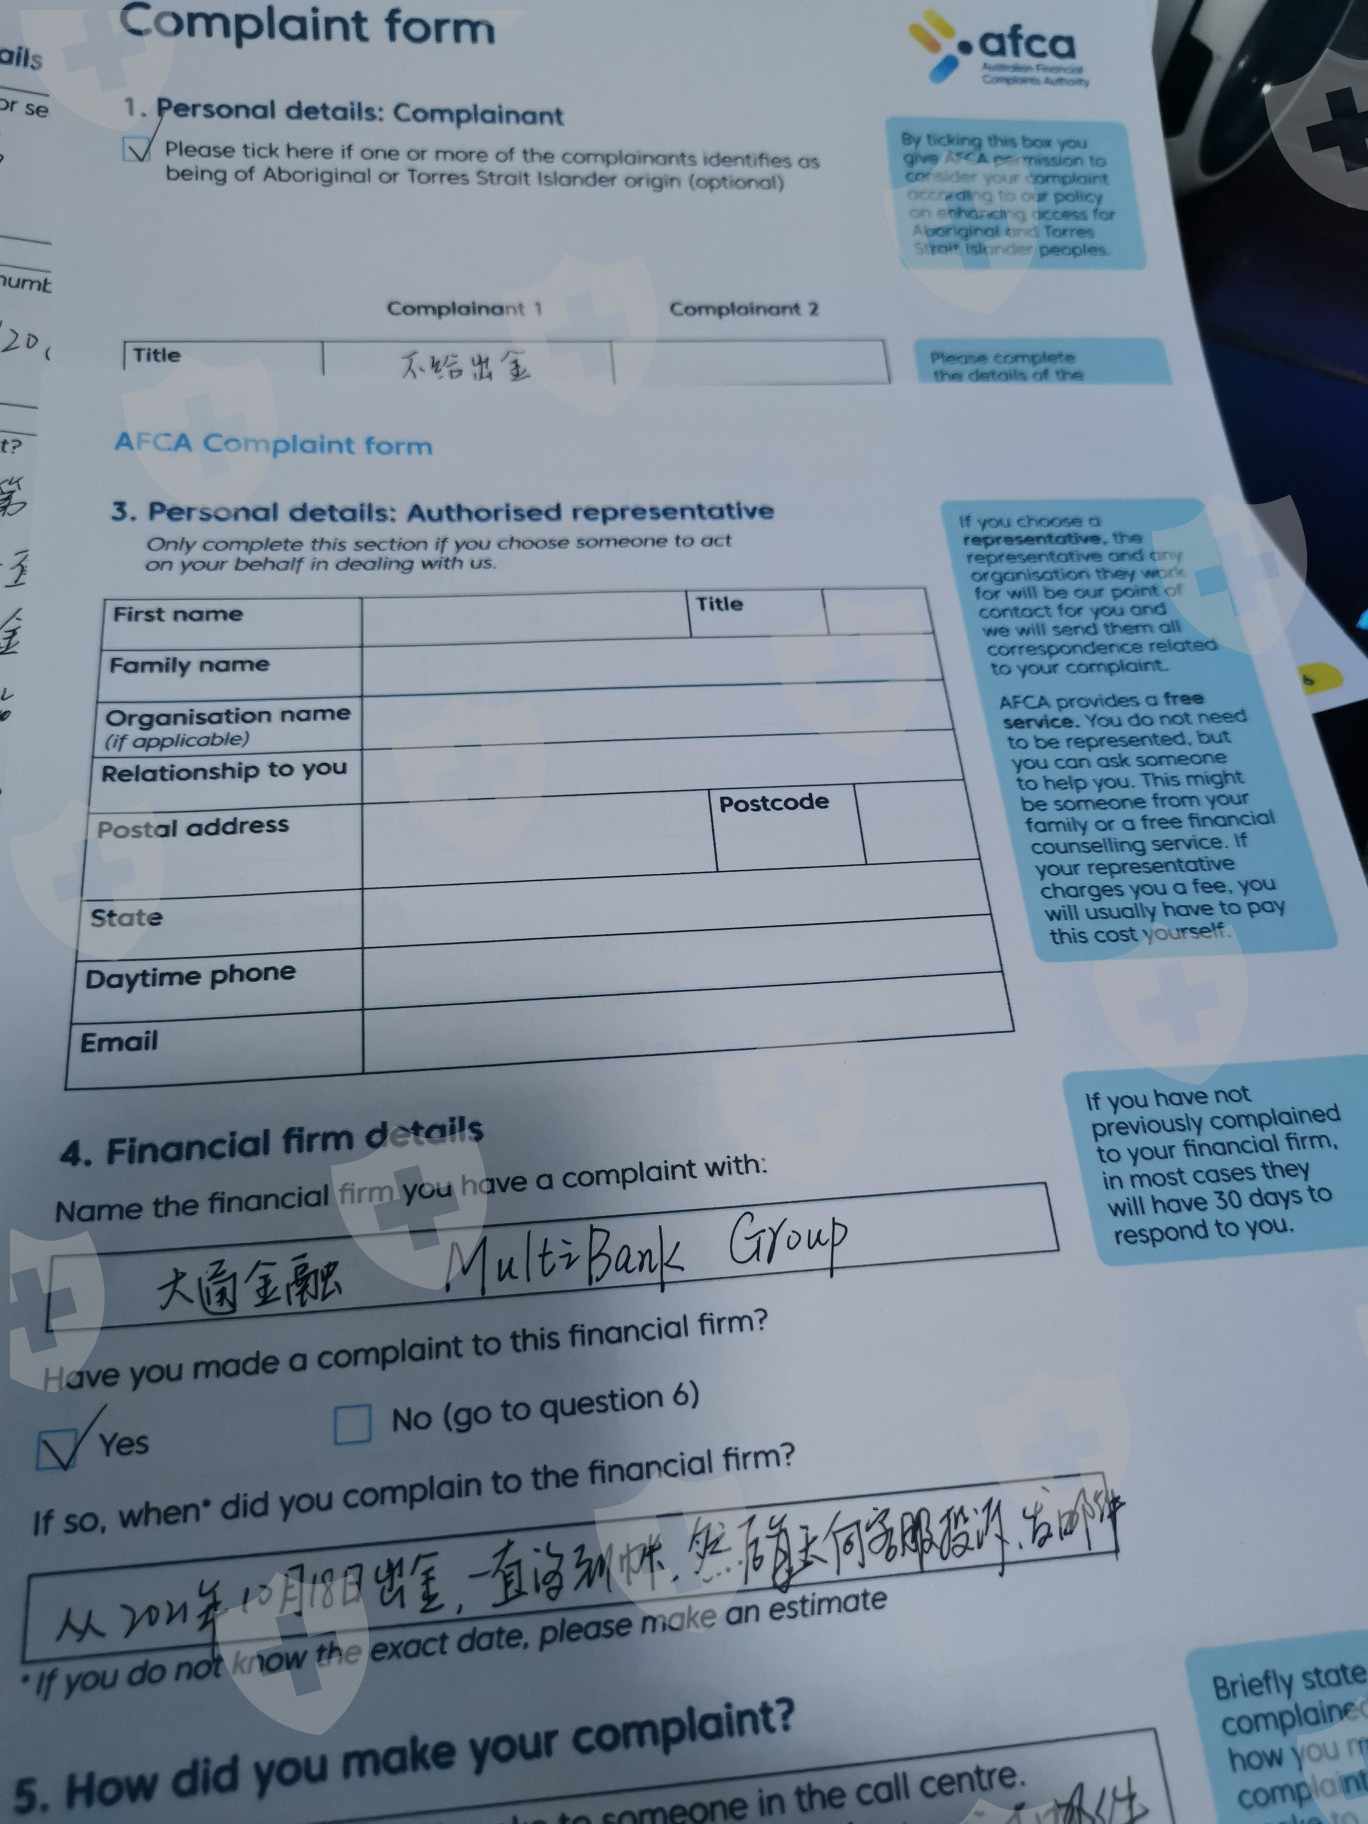 Complaint form
afca
Australian Financial
Complaints Authority
ails
or se
1. Personal details: Complainant
Please tick here if one or more of the complainants identifies as
being of Aboriginal or Torres Strait Islander origin (optional)
By ticking this box you
give AFCA permission to
consider your complaint
according to our policy
on enhancing access for
Aboriginal and Torres
Strait Islander peoples.
numb
Complainant 1
Complainant 2
Title
不给出金
Please complete
the details of the
t?
AFCA Complaint form
3. Personal details: Authorised representative
Only complete this section if you choose someone to act
on your behalf in dealing with us.
First name
Title
Family name
Organisation name
(if applicable)
Relationship to you
Postal address
Postcode
State
Daytime phone
Email
If you choose a
representative, the
representative and any
organisation they work
for will be our point of
contact for you and
we will send them all
correspondence related
to your complaint.
AFCA provides a free
service. You do not need
to be represented, but
you can ask someone
to help you. This might
be someone from your
family or a free financial
counselling service. If
your representative
charges you a fee, you
will usually have to pay
this cost yourself.
4. Financial firm details
Name the financial firm you have a complaint with:
大通金融 MultiBank Group
If you have not
previously complained
to your financial firm,
in most cases they
will have 30 days to
respond to you.
Have you made a complaint to this financial firm?
Yes
No (go to question 6)
If so, when* did you complain to the financial firm?
从2021年10月18日出金,一直没到帐.然后有去向客服投诉.发邮件
*If you do not know the exact date, please make an estimate
5. How did you make your complaint?
to someone in the call centre.
Briefly state
complained
how you m
complaint